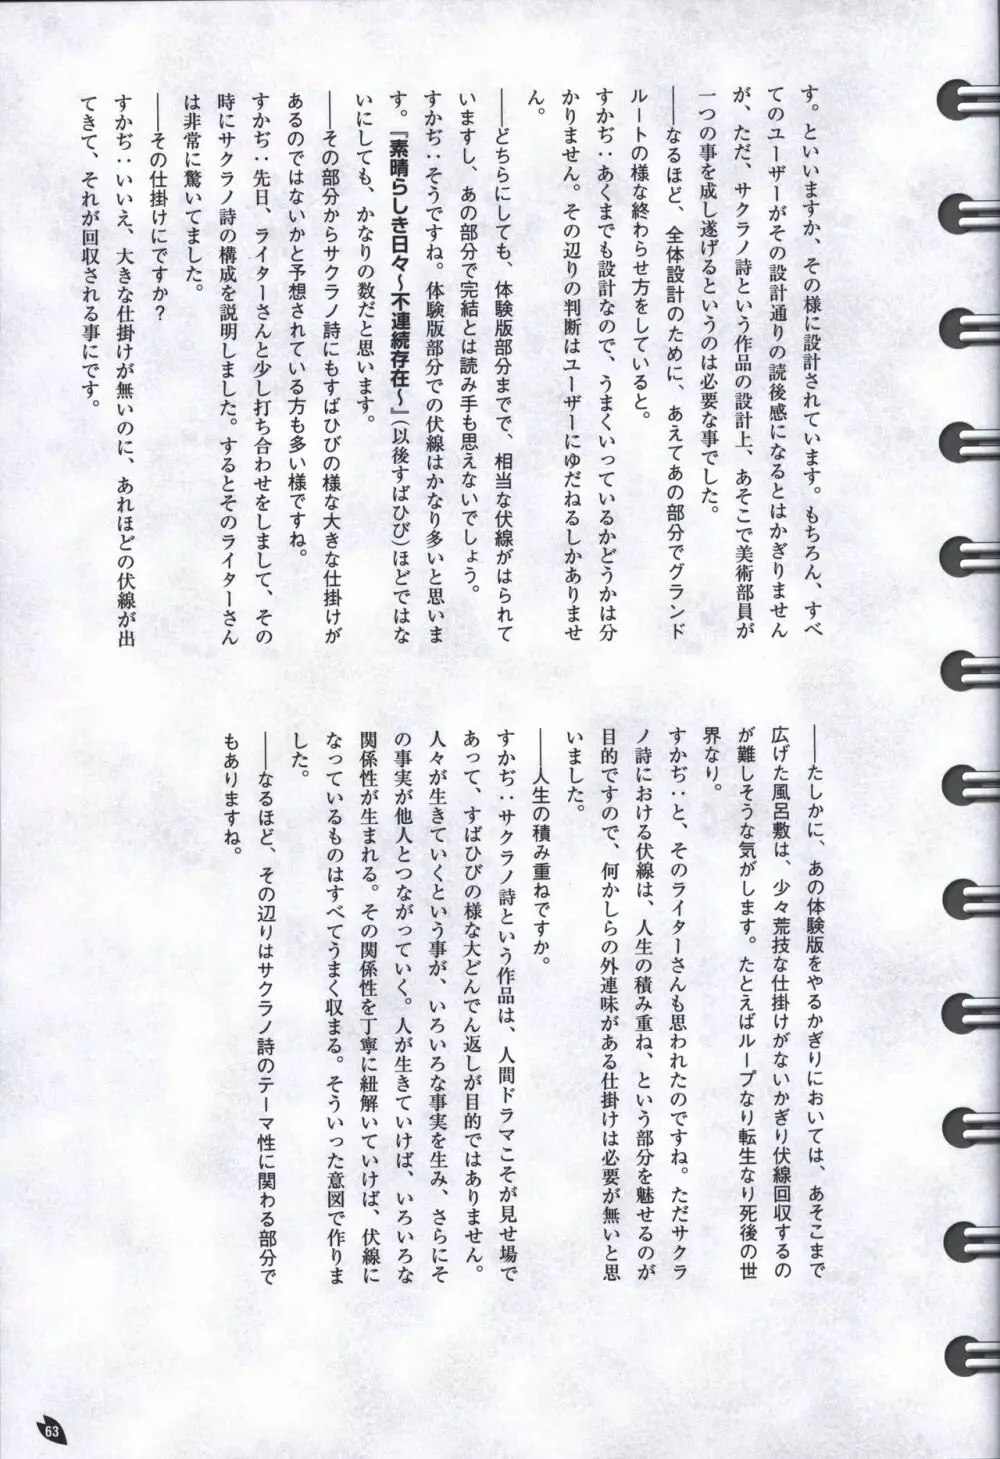 す。といいますか、その様に設計されています。もちろん、すべ
てのユーザーがその設計通りの読後感になるとはかぎりません
が、ただ、サクラノ詩という作品の設計上、あそこで美術部員が
一つの事を成し遂げるというのは必要な事でした。
――なるほど、全体設計のために、あえてあの部分でグランド
ルートの様な終わらせ方をしていると。
すかぢ：あくまでも設計なので、うまくいっているかどうかは分
かりません。その辺りの判断はユーザーにゆだねるしかありませ
ん。
――どちらにしても、体験版部分までで、相当な伏線がはられて
いますし、あの部分で完結とは読み手も思えないでしょう。
すかぢ：そうですね。体験版部分での伏線はかなり多いと思いま
す。『素晴らしき日々～不連続存在～』（以後すばひび）ほどではな
いにしても、かなりの数だと思います。
――その部分からサクラノ詩にもすばひびの様な大きな仕掛けが
あるのではないかと予想されている方も多い様ですね。
すかぢ：先日、ライターさんと少し打ち合わせをしまして、その
時にサクラノ詩の構成を説明しました。するとそのライターさん
は非常に驚いてました。
――その仕掛けにですか？
すかぢ：いいえ、大きな仕掛けが無いのに、あれほどの伏線が出
てきて、それが回収される事にです。
――たしかに、あの体験版をやるかぎりにおいては、あそこまで
広げた風呂敷は、少々荒技な仕掛けがないかぎり伏線回収するの
が難しそうな気がします。たとえばループなり転生なり死後の世
界なり。
すかぢ：と、そのライターさんも思われたのですね。ただサクラ
ノ詩における伏線は、人生の積み重ね、という部分を魅せるのが
目的ですので、何かしらの外連味がある仕掛けは必要が無いと思
いました。
――人生の積み重ねですか。
すかぢ：サクラノ詩という作品は、人間ドラマこそが見せ場で
あって、すばひびの様な大どんでん返しが目的ではありません。
人々が生きていくという事が、いろいろな事実を生み、さらにそ
の事実が他人とつながっていく。人が生きていけば、いろいろな
関係性が生まれる。その関係性を丁寧に紐解いていけば、伏線に
なっているものはすべてうまく収まる。そういった意図で作りま
した。
――なるほど、その辺りはサクラノ詩のテーマ性に関わる部分で
もありますね。
63